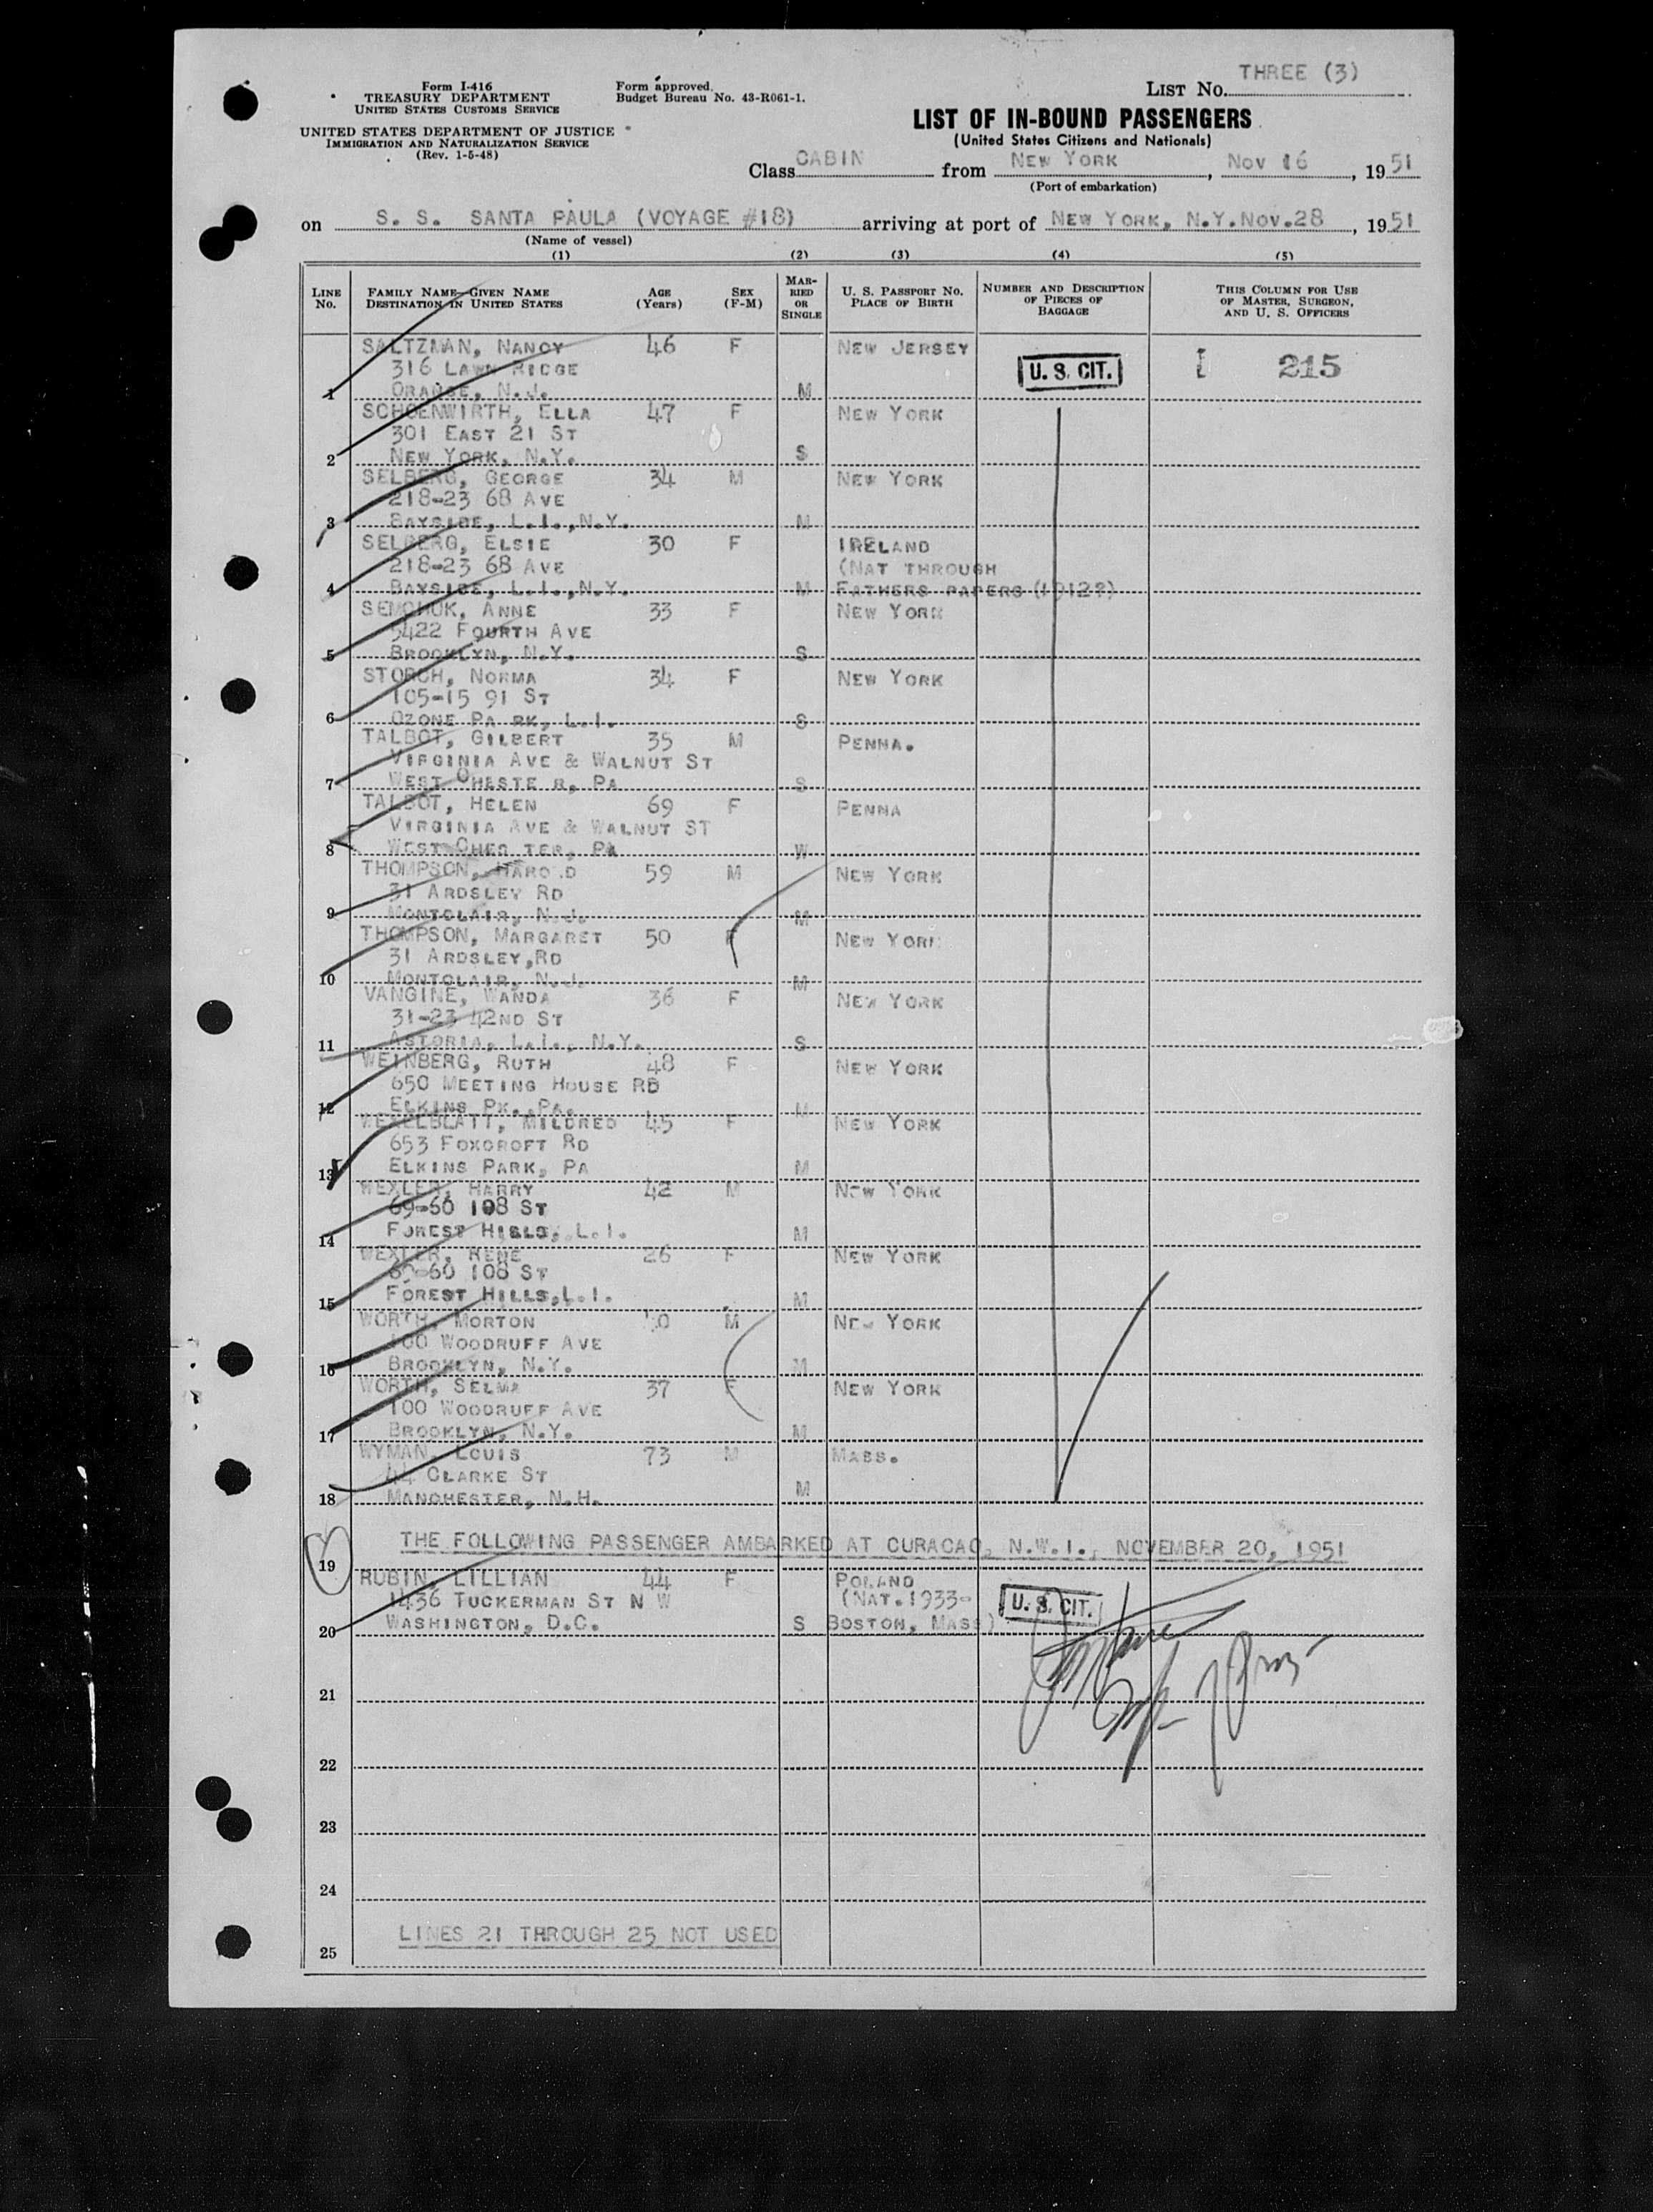 Form I-416
TREASURY DEPARTMENT
UNITED STATES CUSTOMS SERVICE
UNITED STATES DEPARTMENT OF JUSTICE
IMMIGRATION AND NATURALIZATION SERVICE
(Rev. 1-5-48)
Form approved.
Budget Bureau No. 43-R061-1.
LIST NO. THREE (3)
LIST OF IN-BOUND PASSENGERS
(United States Citizens and Nationals)
Class CABIN from NEW YORK, NOV 16, 1951
(Port of embarkation)
on S. S. SANTA PAULA (VOYAGE #18) arriving at port of NEW YORK, N.Y. NOV.28, 1951
(Name of vessel)
(1) (2) (3) (4) (5)
LINE NO. FAMILY NAME—GIVEN NAME DESTINATION IN UNITED STATES AGE (Years) SEX (F-M) MARRIED OR SINGLE U. S. PASSPORT NO. PLACE OF BIRTH NUMBER AND DESCRIPTION OF PIECES OF BAGGAGE THIS COLUMN FOR USE OF MASTER, SURGEON, AND U. S. OFFICERS
SALTZMAN, NANCY 46 F NEW JERSEY
316 LAWN RIDGE U. S. CIT. 215
1 ORANGE, N.J. M
SCHOENWIRTH, ELLA 47 F NEW YORK
301 EAST 21 ST
2 NEW YORK, N.Y. S
SELBERG, GEORGE 34 M NEW YORK
218-23 68 AVE
3 BAYSIDE, L.I.,N.Y. M
SELBERG, ELSIE 30 F IRELAND
218-23 68 AVE (NAT THROUGH
4 BAYSIDE, L.I.,N.Y. M FATHERS PAPERS (1912?)
SEMCHUK, ANNE 33 F NEW YORK
5422 FOURTH AVE
5 BROOKLYN, N.Y. S
STORCH, NORMA 34 F NEW YORK
105-15 91 ST
6 OZONE PA RK, L.I. S
TALBOT, GILBERT 35 M PENNA.
VIRGINIA AVE & WALNUT ST
7 WEST CHESTE R, PA S
TALBOT, HELEN 69 F PENNA
VIRGINIA AVE & WALNUT ST
8 WEST CHES TER, PA W
THOMPSON, HAROLD 59 M NEW YORK
31 ARDSLEY RD
9 MONTCLAIR, N.J. M
THOMPSON, MARGARET 50 F NEW YORK
31 ARDSLEY,RD
10 MONTCLAIR, N.J. M
VANGINE, WANDA 36 F NEW YORK
31-23 42ND ST
11 ASTORIA, L.I., N.Y. S
WEINBERG, RUTH 48 F NEW YORK
650 MEETING HOUSE RD
12 ELKINS PK., PA. M
WEXELBLATT, MILDRED 45 F NEW YORK
653 FOXCROFT RD
13 ELKINS PARK, PA M
WEXLER, HARRY 42 M NEW YORK
69-60 108 ST
14 FOREST HILLS, L.I. M
WEXLER, RENE 26 F NEW YORK
69-60 108 ST
15 FOREST HILLS,L.I. M
WORTH, MORTON M NEW YORK
100 WOODRUFF AVE
16 BROOKLYN, N.Y. M
WORTH, SELMA 37 F NEW YORK
100 WOODRUFF AVE
17 BROOKLYN, N.Y. M
WYMAN, LOUIS 73 M MASS.
44 CLARKE ST
18 MANCHESTER, N.H. M
19 THE FOLLOWING PASSENGER AMBARKED AT CURACAO, N.W.I., NOVEMBER 20, 1951
RUBIN, LILLIAN 44 F POLAND
1436 TUCKERMAN ST N W (NAT.1933- U. S. CIT.
20 WASHINGTON, D.C. S BOSTON, MASS)
21
22
23
24
25 LINES 21 THROUGH 25 NOT USED